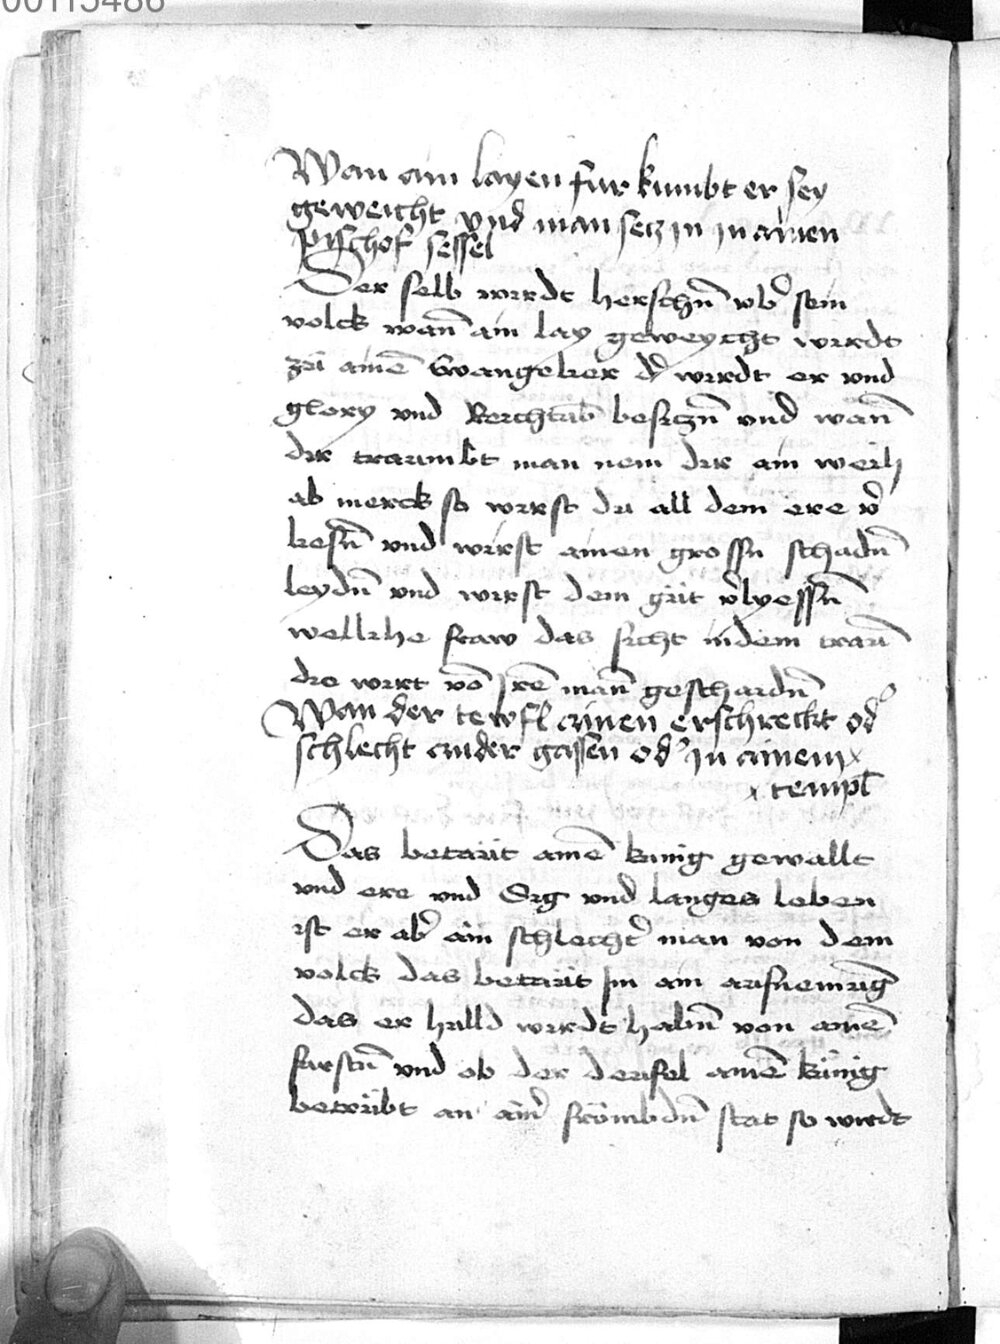 00115486
Wan ain layen fur kumbt er sey
geweicht vnd man secz in in ainen
Pischof sessel
Der selb wirdt herschn̄ vb̾ sein
volck wan̄ ain lay geweycht wirdt
zu aine͂ Ewangelier d̾ wirdt er vnd
glory vnd besiczn̄ vnd wan̄
dir traumbt man nem dir ain weih
ab merck so wirst du all dem ere v̾
liesn̄ vnd wirst ainen grossn schadn̄
leydn̄ vnd wirst dem gut v̾lyessn̄
wellihe fraw das sicht in dem traū
die wirt vō Ire͂ man̄ geschaidn̄
Wan der tewfl ainen erschreckt od̾
schlecht ander gassen od̾ in ainem
templ
Das betaüt aine͂ kunig gewallt
vnd ere vnd Sig vnd langes leben
ist er ab̾ ain schlecht̾ man von dem
volck das betaüt in ain
das er huld wirdt habn̄ von aine͂
furstn̄ vnd ob der deufel aine͂ künig
betrübt an ain̾ frömbdn̄ stat so wirdt